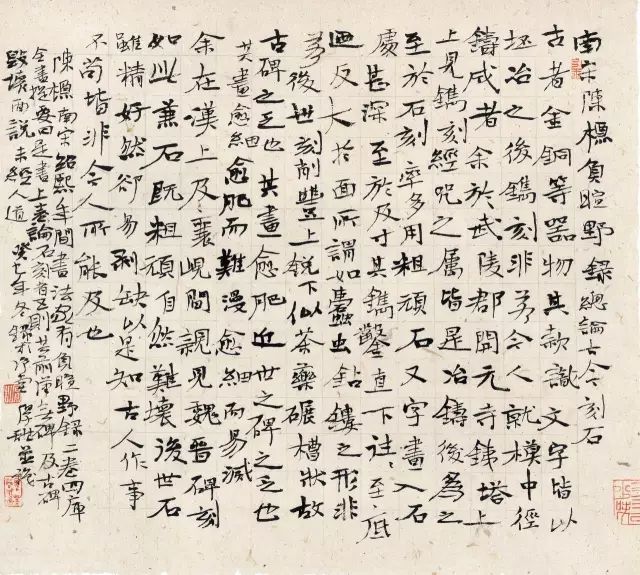 南宋陳槱負暄野錄總論古今刻石
古者金銅等器物其款識文字皆以
坯冶之後鐫刻非若今人就模中徑
鑄成者余於武陵郡開元寺銕塔上
上見鐫刻經咒之屬皆是冶鑄後為之
至於石刻率多用粗頑石又字畫入石
處甚深至於及寸其鐫鑿直下往往至底
迴反大於面所謂如蠹虫鉆鏤之形非
若後世刻削豐上銳下似茶藥碾槽狀故
古碑之乏也其畫愈肥近世之碑之乏也
其畫愈細愈肥而難漫愈細而易滅
余在漢上及襄峴間親見魏晉碑刻
如此兼石既粗頑自然難壞後世石
雖精好然卻易剝缺以是知古人作事
不苟皆非今人所能及也
陳槱南宋紹熙年間書法家有負暄野錄二卷四庫
全書提要曰是書上卷論石刻者五則其所論古碑及古碑
毀壞兩說未經人道 癸 年冬錄於